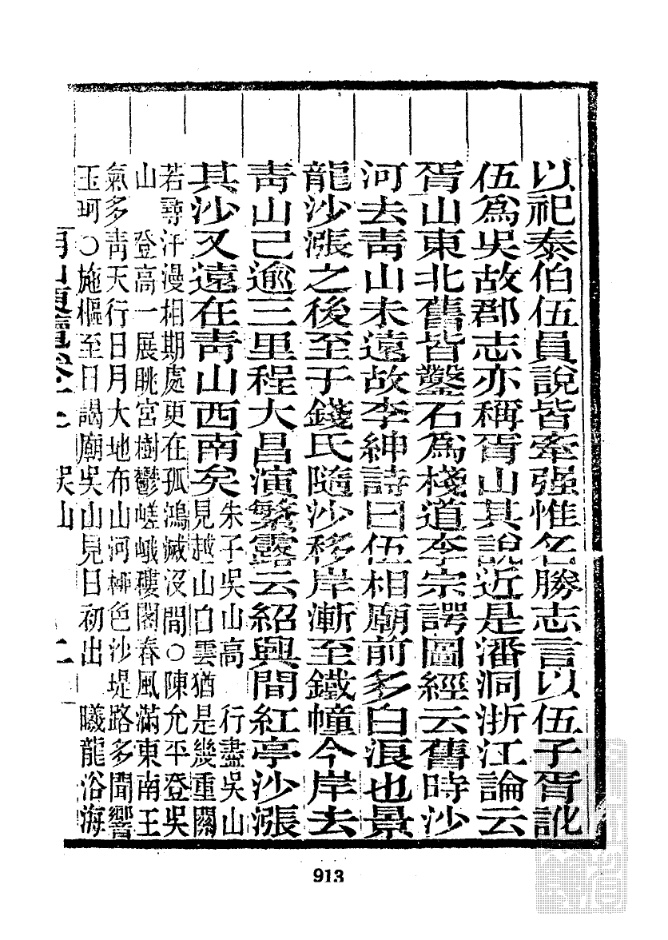 以祀泰伯伍員說皆牽强惟名勝志言以伍子胥訛
伍爲吳故郡志亦稱胥山其說近是潘洞浙江論云
胥山東北舊皆鑿石爲棧道李宗諤圖經云舊時沙
河去靑山未遠故李紳詩曰伍相廟前多白浪也景
龍沙漲之後至于錢氏隨沙移岸漸至鐵幢今岸去
靑山已逾三里程大昌演繁露云紹興間紅亭沙漲
其沙又遠在靑山西南矣
朱子吳山高 行盡吳山
見越山白雲猶是幾重關
若尋汗漫相期處更在孤鴻滅沒間○陳允平登吳
山 登高一展眺宮樹鬱嵯峨樓閣春風滿東南王
氣多靑天行日月大地布山河柳色沙堤路多聞響
玉珂○施樞至日謁廟吳山見日初出 曦龍浴海
913